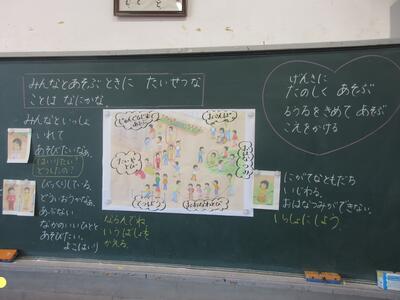 みんなとあそぶときに たいせつな
ことは なにかな
みんなといっしょ
いれて
あそびたいなあ。
はいりたい?
どうしたの?
びっくりしている。
どういおうかなあ。
あぶない
なかのいいひとと
あそびたい。
よこはいり
ならんでね。
いうばしょを
かえる。
げんきに
たのしく あそぶ
るうるをきめて あそぶ
こえをかける
にがてなともだち
いじわる。
おはなつみができない。
いっしょにしよう。